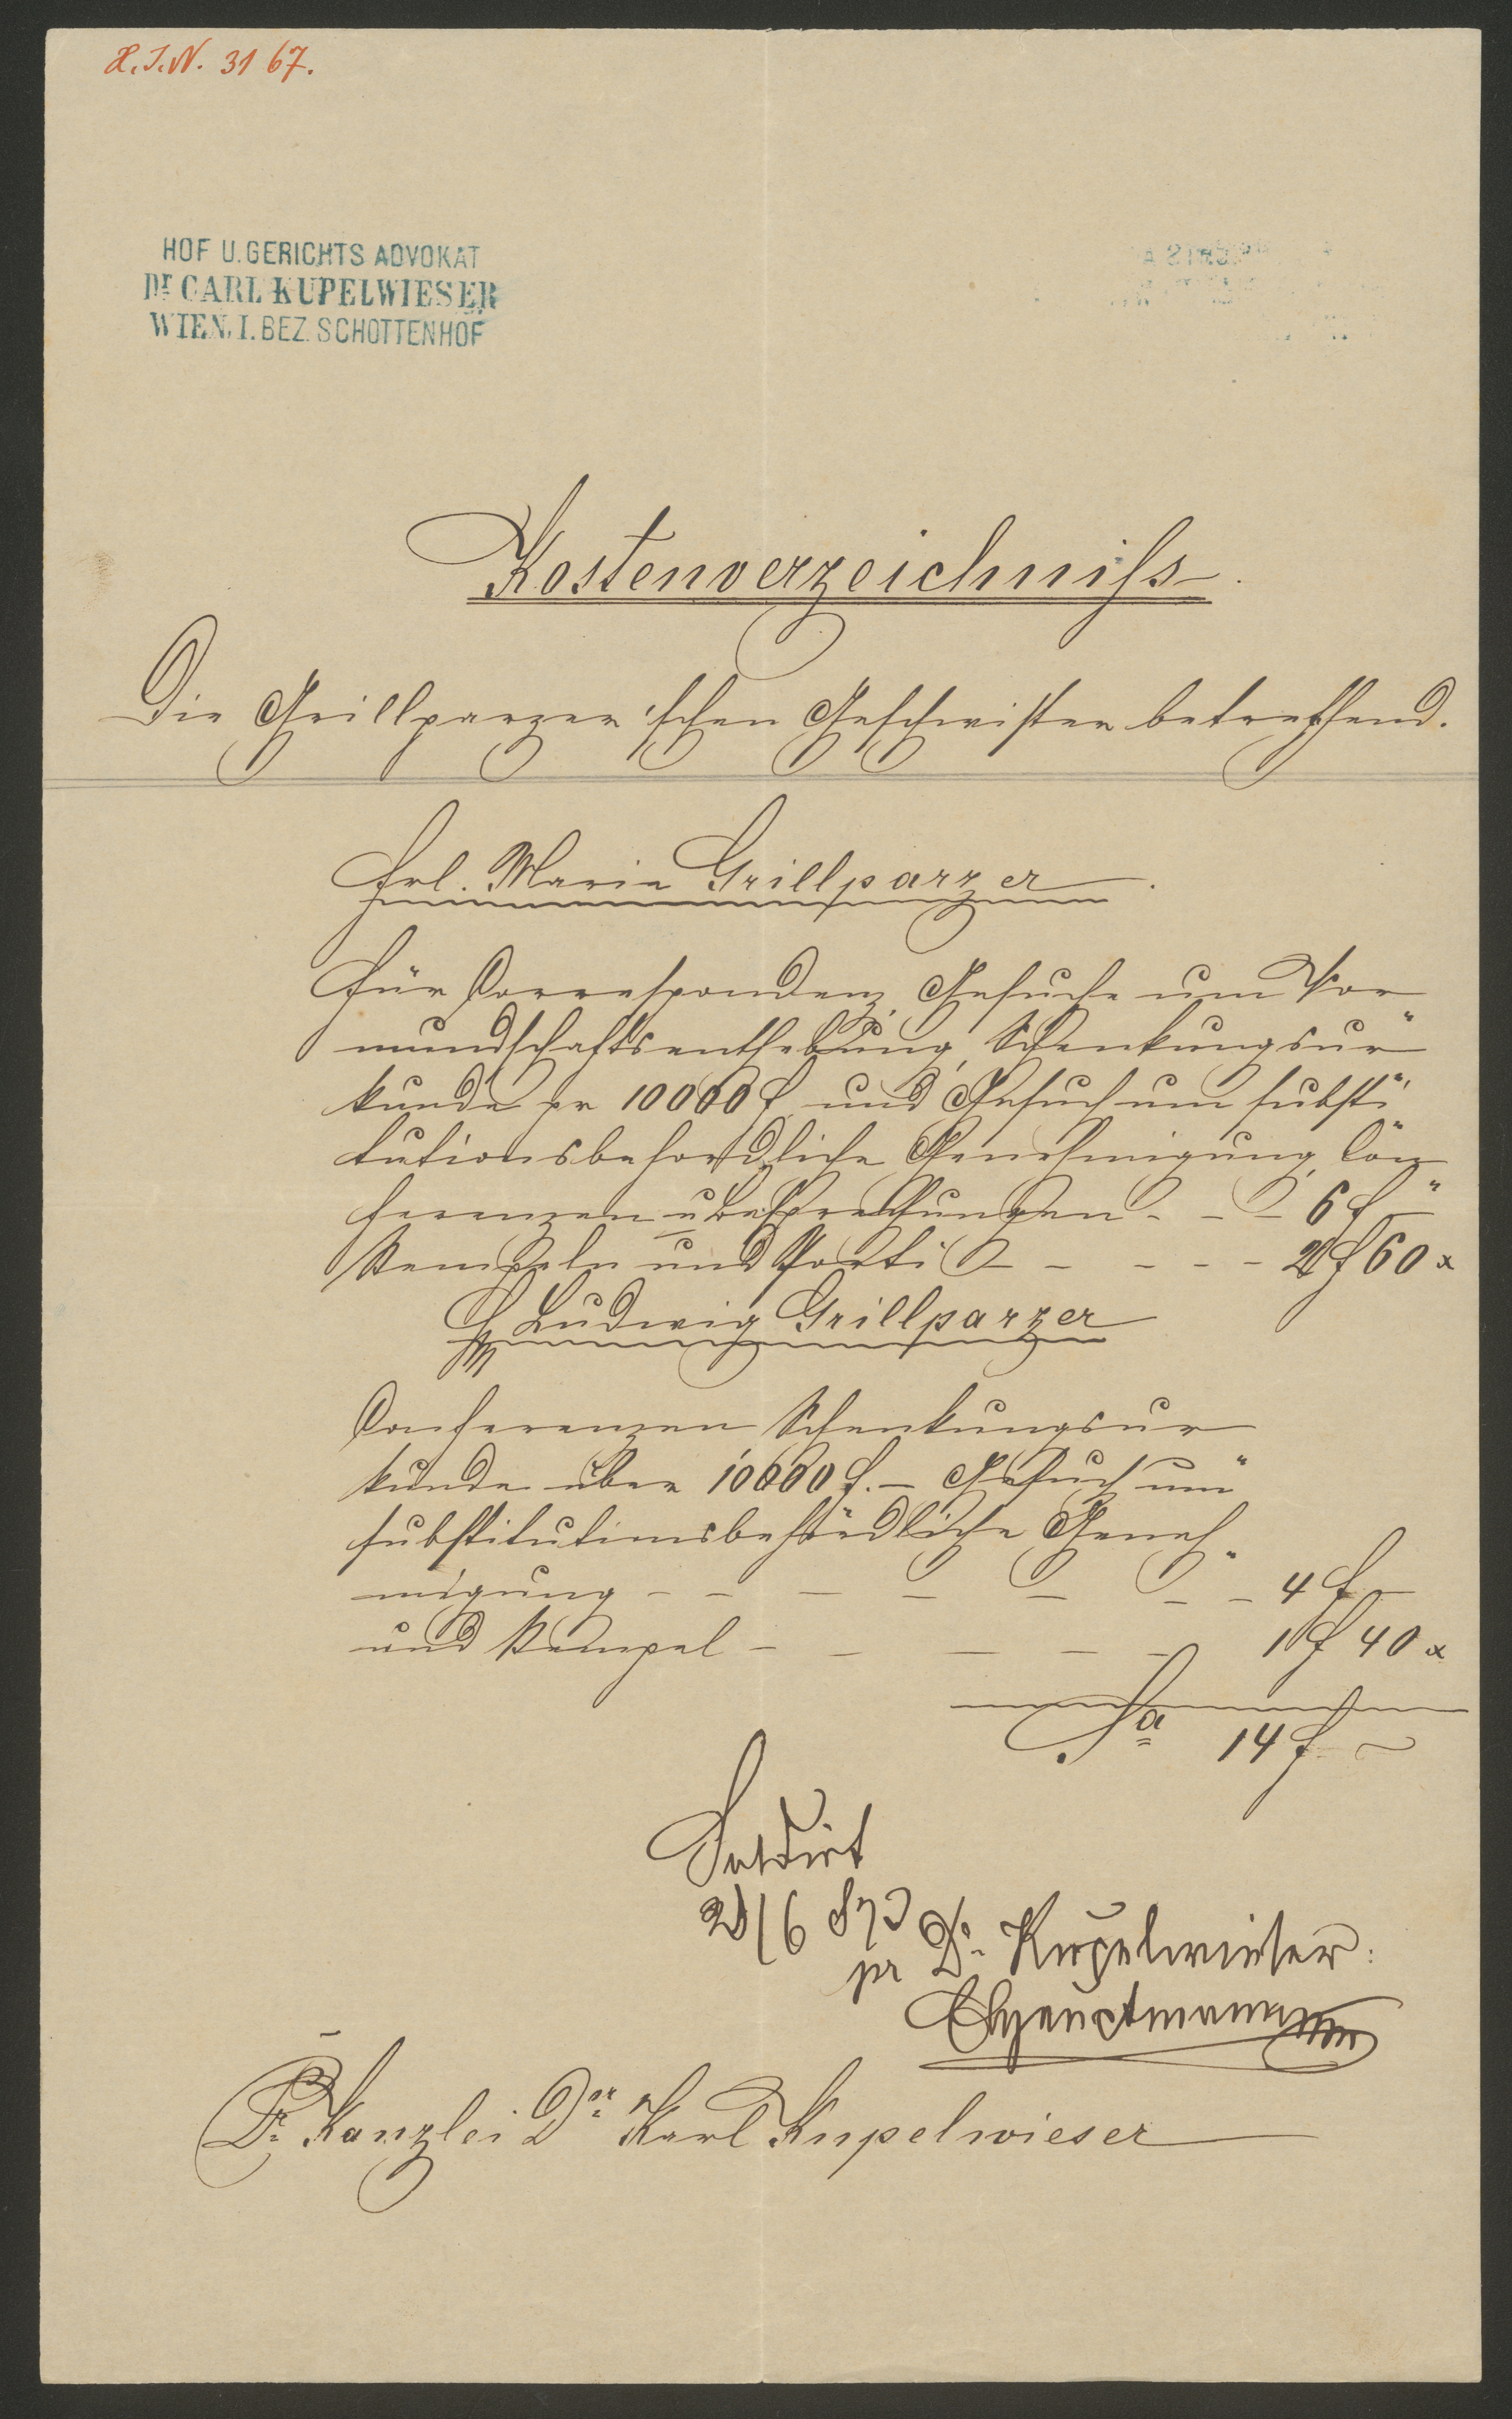 H.I.N. 3167.
HOF U. GERICHTS ADVOKAT
Dr CARL KUPELWIESER
WIEN, I. BEZ. SCHOTTENHOF
Kostenverzeichniss.
Die Grillparzer'schen Geschwister betreffend.
Frl. Marie Grillparzer.
Für Correspondenz, Gesuche um Vor
mundschaftsenthebung, Schenkungsur"
kunde pr 10000 f und Gesuch um substi"
tutionsbehördliche Genehmigung, Con
ferenzen u Besprechungen - - - 6 f "–
Stempeln und Porti - - - - - 2 f 60 x
H Ludwig Grillparzer
Conferenzen Schenkungsur
kunde über 10000 f. – Gesuch um"
substitutionsbehördliche Geneh
migung - - - - - - - 4 f –
und Stempel - - - - - 1 f 40 x
Sa 14 f ~
Saldirt
/6 873
pr Dr. Kupelwieser:
Kanzlei Dr. Karl Kupelwieser